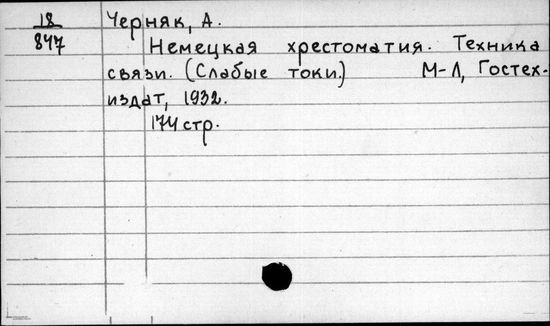 18
847
Черняк, А.
Немецкая хрестоматия. Техника
связи. (Слабые токи.) М-Л, Гостех-
издат, 1932.
174 стр.